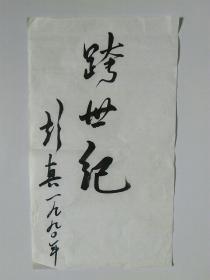 跨世纪
彭真一九九〇年